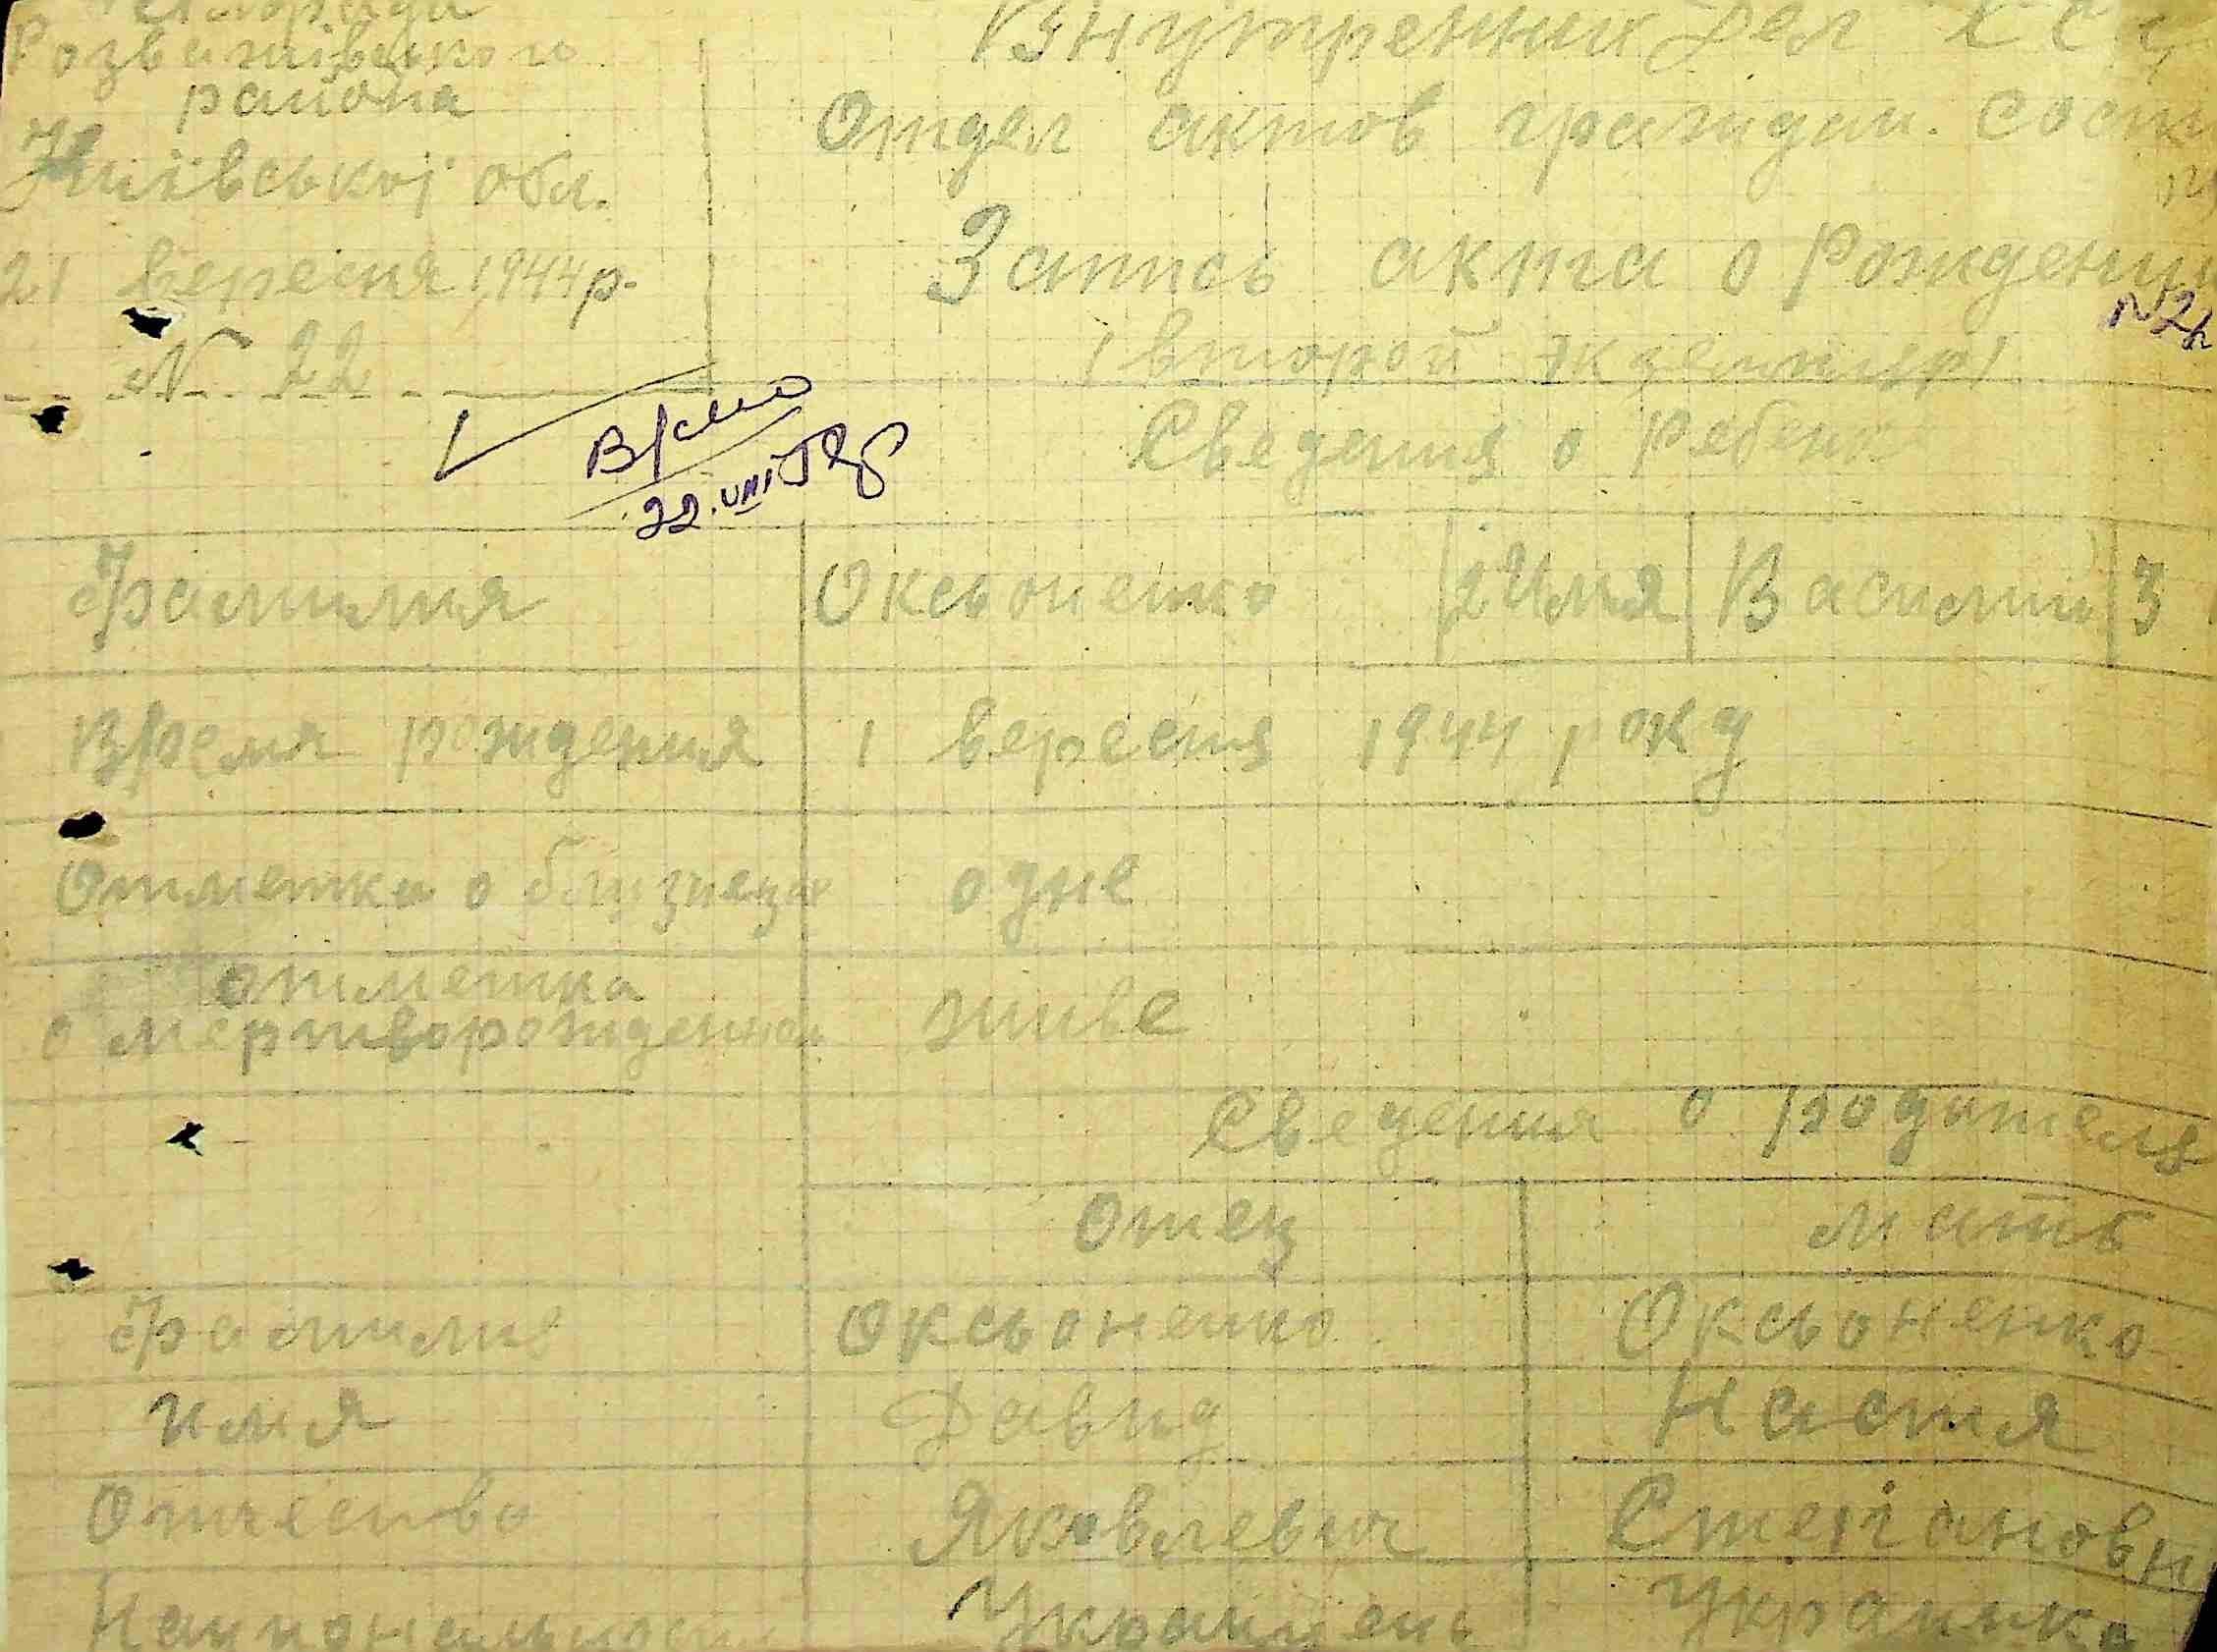 Розважівського
района
Київської обл.
21 вересня 1944 р.
№ 22
Внутренник дел
Отдел актов граждан. сост
Запись акта о Рождении
(второй экземпляр)
Сведения о Ребенк
22.VIII
Фамилия Оксьоненко 2 Имя Василий 3
Время рождения 1 вересня 1944 року
Отметка о близнецах одне
отметка
о мертворожденном живе
Сведения о родителя
Отец мать
Фамилие Оксьоненко Оксьоненко
имя Давид Настя
Отчество Яковлевич Степановн
Национальност Українець Українка